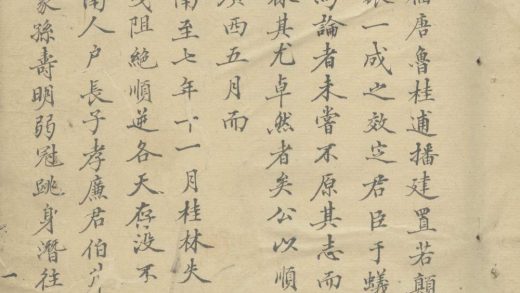 唐魯桂逋播建置若顛
一成之效定君臣于蟻
論者未嘗不原其志而
其尤卓然者矣公以順
酉五月而
南至七年十一月桂林失
阻絶順逆各天存没不
南人户長子孝廉君伯
孫壽明弱冠跳身潛往